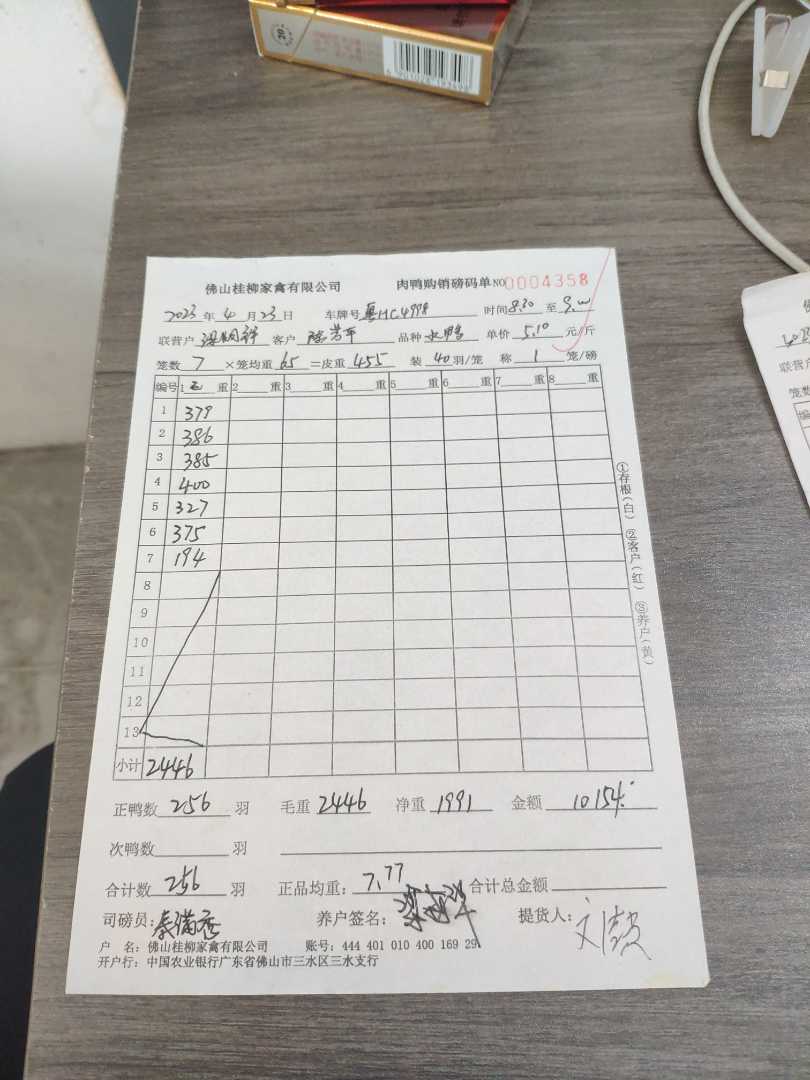 20
佛山桂柳家禽有限公司 肉鸭购销磅码单 NO 0004358
2023年4月23日 车牌号 粤HC4998 时间 8.30 至 9.00
联营户 客户 陈芳平 品种 水鸭 单价 5.10 元/斤
笼数 7 ×笼均重 65 =皮重 455 装 40 羽/笼 称 1 笼/磅
编号 1 毛 重 2 重 3 重 4 重 5 重 6 重 7 重 8 重
1 379
2 386
3 385
4 400
5 327
6 375
7 194
8
9
10
11
12
13
小计 2446
①存根(白) ②客户(红) ③养户(黄)
正鸭数 256 羽 毛重 2446 净重 1991 金额 10154.
次鸭数 羽
合计数 256 羽 正品均重: 7.77 合计总金额
司磅员: 秦满秀 养户签名: 提货人:
户 名: 佛山桂柳家禽有限公司 账号: 444 401 010 400 169 29
开户行: 中国农业银行广东省佛山市三水区三水支行
联营户
笼数